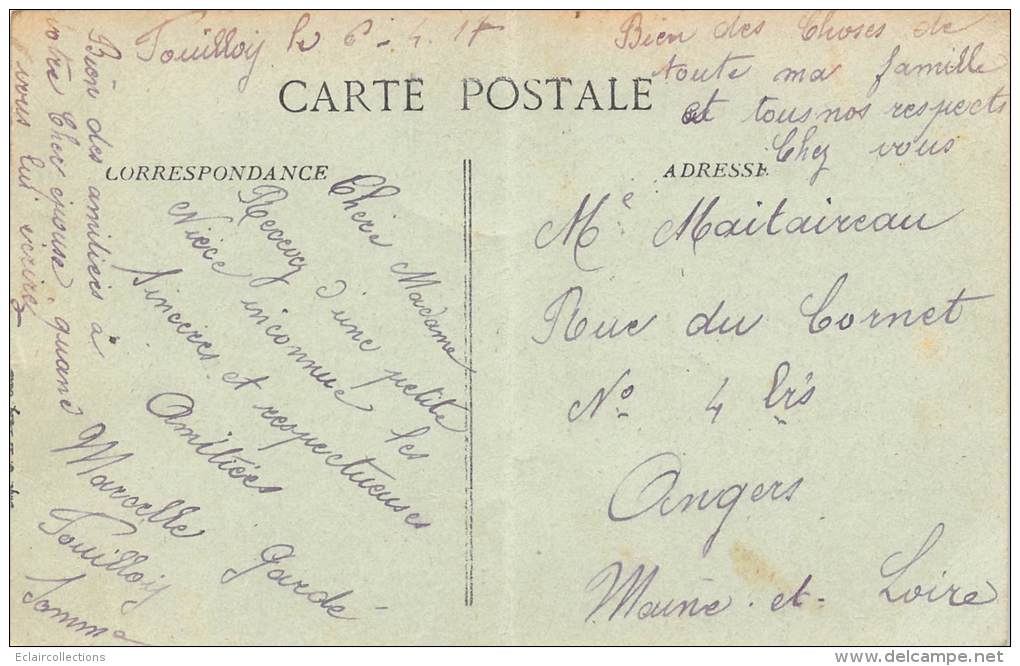 Fouilloy le 6-4.17
Bien des Choses de
toute ma famille
et tous nos respects
Chez vous
CARTE POSTALE
CORRESPONDANCE
ADRESSE
Chère Madame
Recevez d'une petite
Nièce inconnue les
Sincères et respectueuses
Amitiées
Marcelle Gardé
Fouilloy
Somme
Bien des amitiées à
votre Cher époux, quand
vous lui écrirez
Me Maitaireau
Rue du Cornet
No 4 bis
Angers
Maine-et-Loire
Eclaircollections
www.delcampe.net